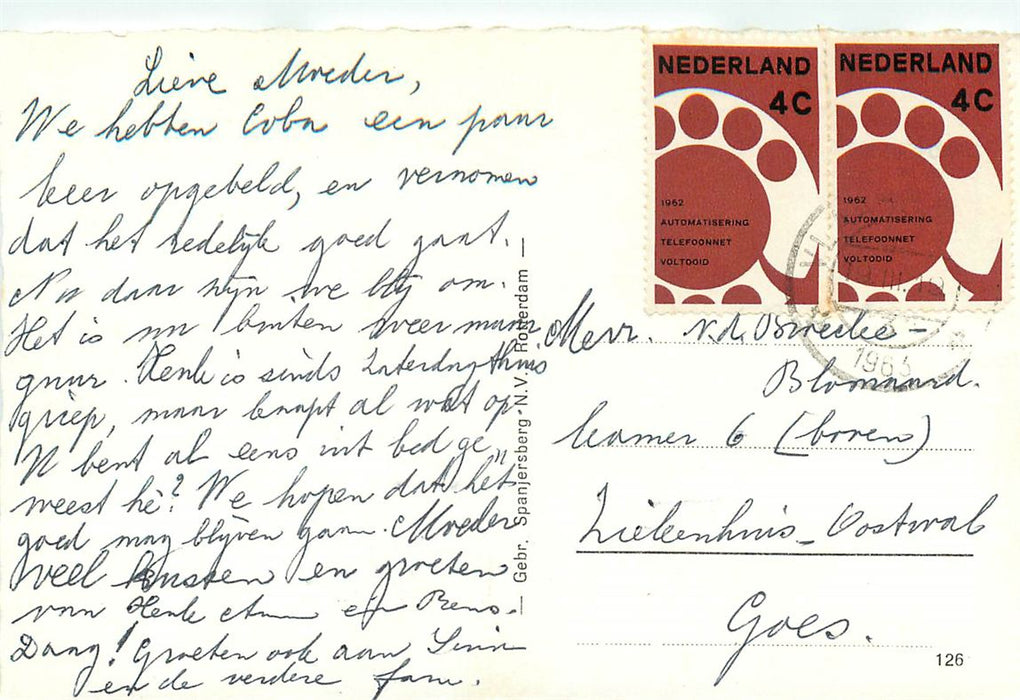 Lieve Moeder,
We hebben Coba een paar
keer opgebeld, en vernomen
dat het redelijk goed gaat.
Nu daar zijn we blij om.
Het is nu buiten weer maar
guur. Henk is sinds Zaterdag thuis
griep, maar knapt al wat op
U bent al eens uit bed ge„
weest hè? We hopen dat het
goed mag blijven gaan. Moeder
veel kusten en groeten
van Henk en Rens.
Daag! Groeten ook aan
en de verdere fam.
Gebr. Spanjersberg N.V. Rotterdam
NEDERLAND
4C
1962
AUTOMATISERING
TELEFOONNET
VOLTOOID
NEDERLAND
4C
1962
AUTOMATISERING
TELEFOONNET
VOLTOOID
1963
Mevr. v.d.
kamer 6 (boven)
Ziekenhuis-Oostwal
Goes.
126